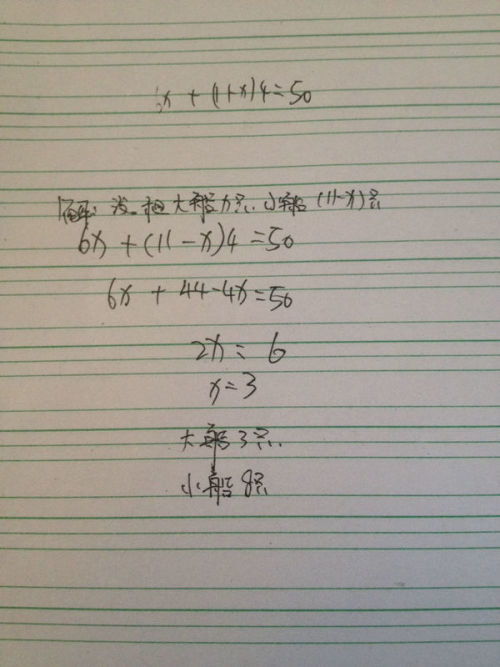 6x + (11-x)4=50
解:设租大船x只.小船(11-x)只
6x+(11-x)4=50
6x + 44-4x=50
2x= 6
x=3
大船3只.
小船8只